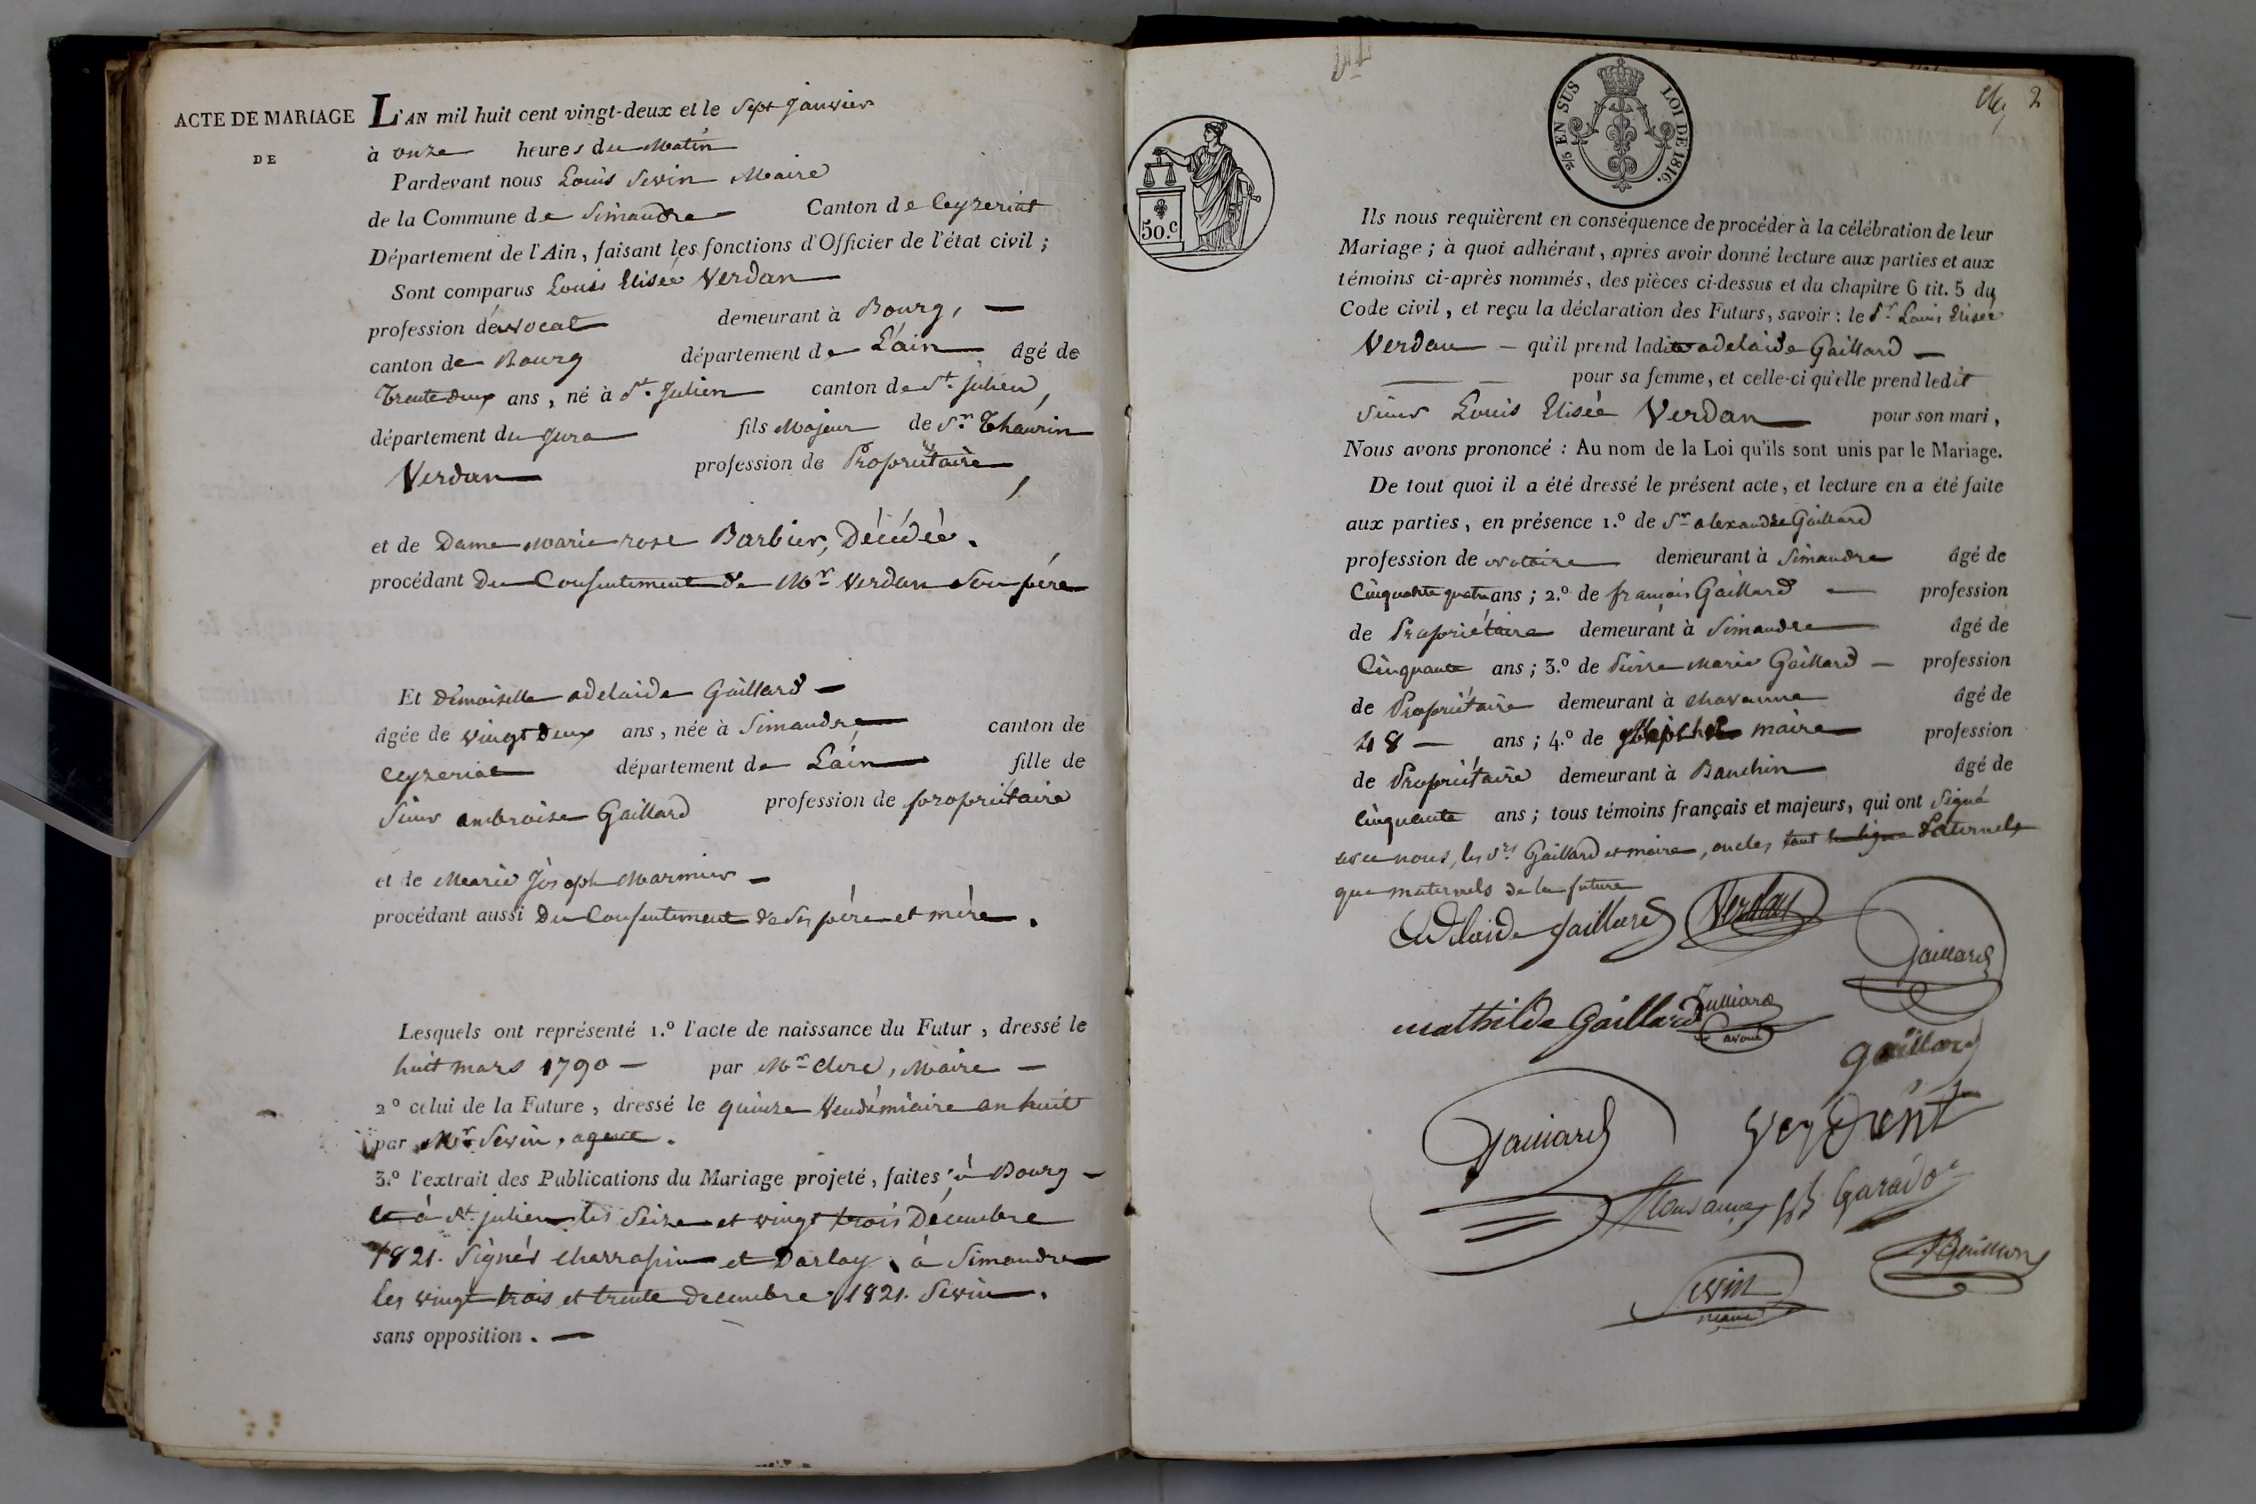 ACTE DE MARIAGE
DE
L'AN mil huit cent vingt-deux et le sept janvier
à onze heures du Matin
Pardevant nous Louis Sevin Maire
de la Commune de Simandre Canton de Ceyzeriat
Département de l'Ain, faisant les fonctions d'Officier de l'état civil ;
Sont comparus Louis Elisée Verdan
profession d'avocat demeurant à Bourg,
canton de Bourg département de L'ain âgé de
Trente deux ans, né à St. Julien canton de St. julien,
département du Jura fils Majeur de Sr. Thaurin
Verdan profession de Propriétaire,
et de Dame Marie rose Barbier, Décédée.
procédant Du Consentement de Mr. Verdan Son père
Et Demoiselle adelaide Gaillard
âgée de vingt Deux ans, née à Simandre canton de
Ceyzeriat département de L'ain fille de
Sieur ambroise Gaillard profession de propriétaire
et de Marie Joseph Marmier
procédant aussi Du Consentement de Ses père et mère.
Lesquels ont représenté 1.º l'acte de naissance du Futur, dressé le
huit mars 1790 par Mr. Clerc, Maire
2º celui de la Future, dressé le quinze Vendémiaire an huit
par Mr. Sevin, agent.
3.º l'extrait des Publications du Mariage projeté, faites à Bourg
et à St. julien les Seize et vingt trois Décembre
1821. Signés Charrassin et Darlay, à Simandre
les vingt trois et trente decembre 1821. Sevin.
sans opposition.
2
2/5 EN SUS LOI DE 1816.
50.c
Ils nous requièrent en conséquence de procéder à la célébration de leur
Mariage ; à quoi adhérant, après avoir donné lecture aux parties et aux
témoins ci-après nommés, des pièces ci-dessus et du chapitre 6 tit. 5 du
Code civil, et reçu la déclaration des Futurs, savoir : le Sr. Louis Elisée
Verdan qu'il prend ladite adelaide Gaillard
pour sa femme, et celle-ci qu'elle prend ledit
sieur Louis Elisée Verdan pour son mari,
Nous avons prononcé : Au nom de la Loi qu'ils sont unis par le Mariage.
De tout quoi il a été dressé le présent acte, et lecture en a été faite
aux parties, en présence 1.º de Sr. alexandre Gaillard
profession de Notaire demeurant à Simandre âgé de
Cinquante quatre ans ; 2.º de françois Gaillard profession
de Propriétaire demeurant à Simandre âgé de
Cinquante ans ; 3.º de Pierre Marie Gaillard profession
de Propriétaire demeurant à Chavanne âgé de
48 ans ; 4.º de maire profession
de Propriétaire demeurant à Banchin âgé de
Cinquante ans ; tous témoins français et majeurs, qui ont Signé
avec nous, les Srs. Gaillard et maire, oncles tant Paternels
que maternels de la future
Adelaide gaillard Verdan
Gaillard
mathilde Gaillard Julliard
avoué
gaillard
Gaillard
Sevin
maire